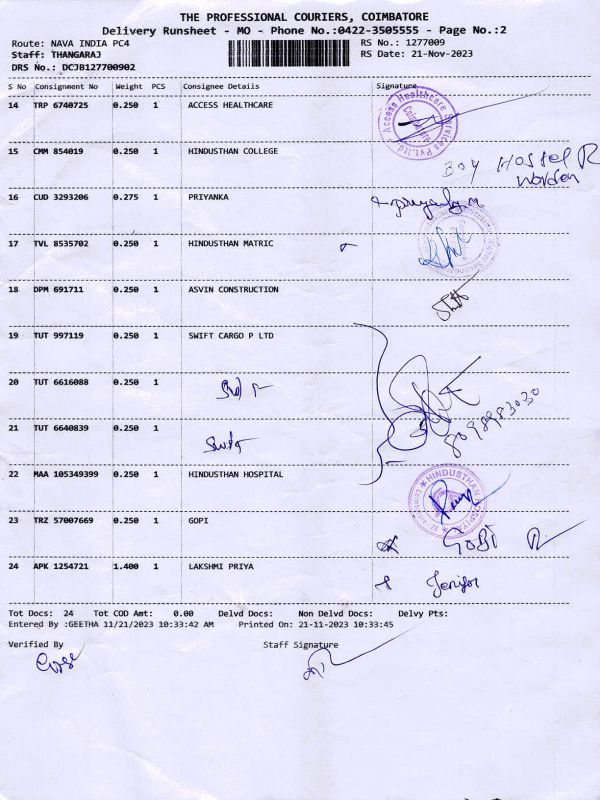 THE PROFESSIONAL COURIERS, COIMBATORE
Delivery Runsheet - MO - Phone No.:0422-3505555 - Page No.:2
Route: NAVA INDIA PC4 RS No.: 1277009
Staff: THANGARAJ RS Date: 21-Nov-2023
DRS No.: DCJB127700902
S No Consignment No Weight PCS Consignee Details Signature
14 TRP 6740725 0.250 1 ACCESS HEALTHCARE
Access Healthcare Services Pvt.ltd Coimbatore
15 CMM 854019 0.250 1 HINDUSTHAN COLLEGE
BOY HOSTEL R
Warden
16 CUD 3293206 0.275 1 PRIYANKA
17 TVL 8535702 0.250 1 HINDUSTHAN MATRIC
18 DPM 691711 0.250 1 ASVIN CONSTRUCTION
19 TUT 997119 0.250 1 SWIFT CARGO P LTD
20 TUT 6616088 0.250 1
8098983030
21 TUT 6640839 0.250 1
22 MAA 105349399 0.250 1 HINDUSTHAN HOSPITAL
HINDUSTHAN HOSPITAL
23 TRZ 57007669 0.250 1 GOPI
GOBI R
24 APK 1254721 1.400 1 LAKSHMI PRIYA
Tot Docs: 24 Tot COD Amt: 0.00 Delvd Docs: Non Delvd Docs: Delvy Pts:
Entered By :GEETHA 11/21/2023 10:33:42 AM Printed On: 21-11-2023 10:33:45
Verified By Staff Signature